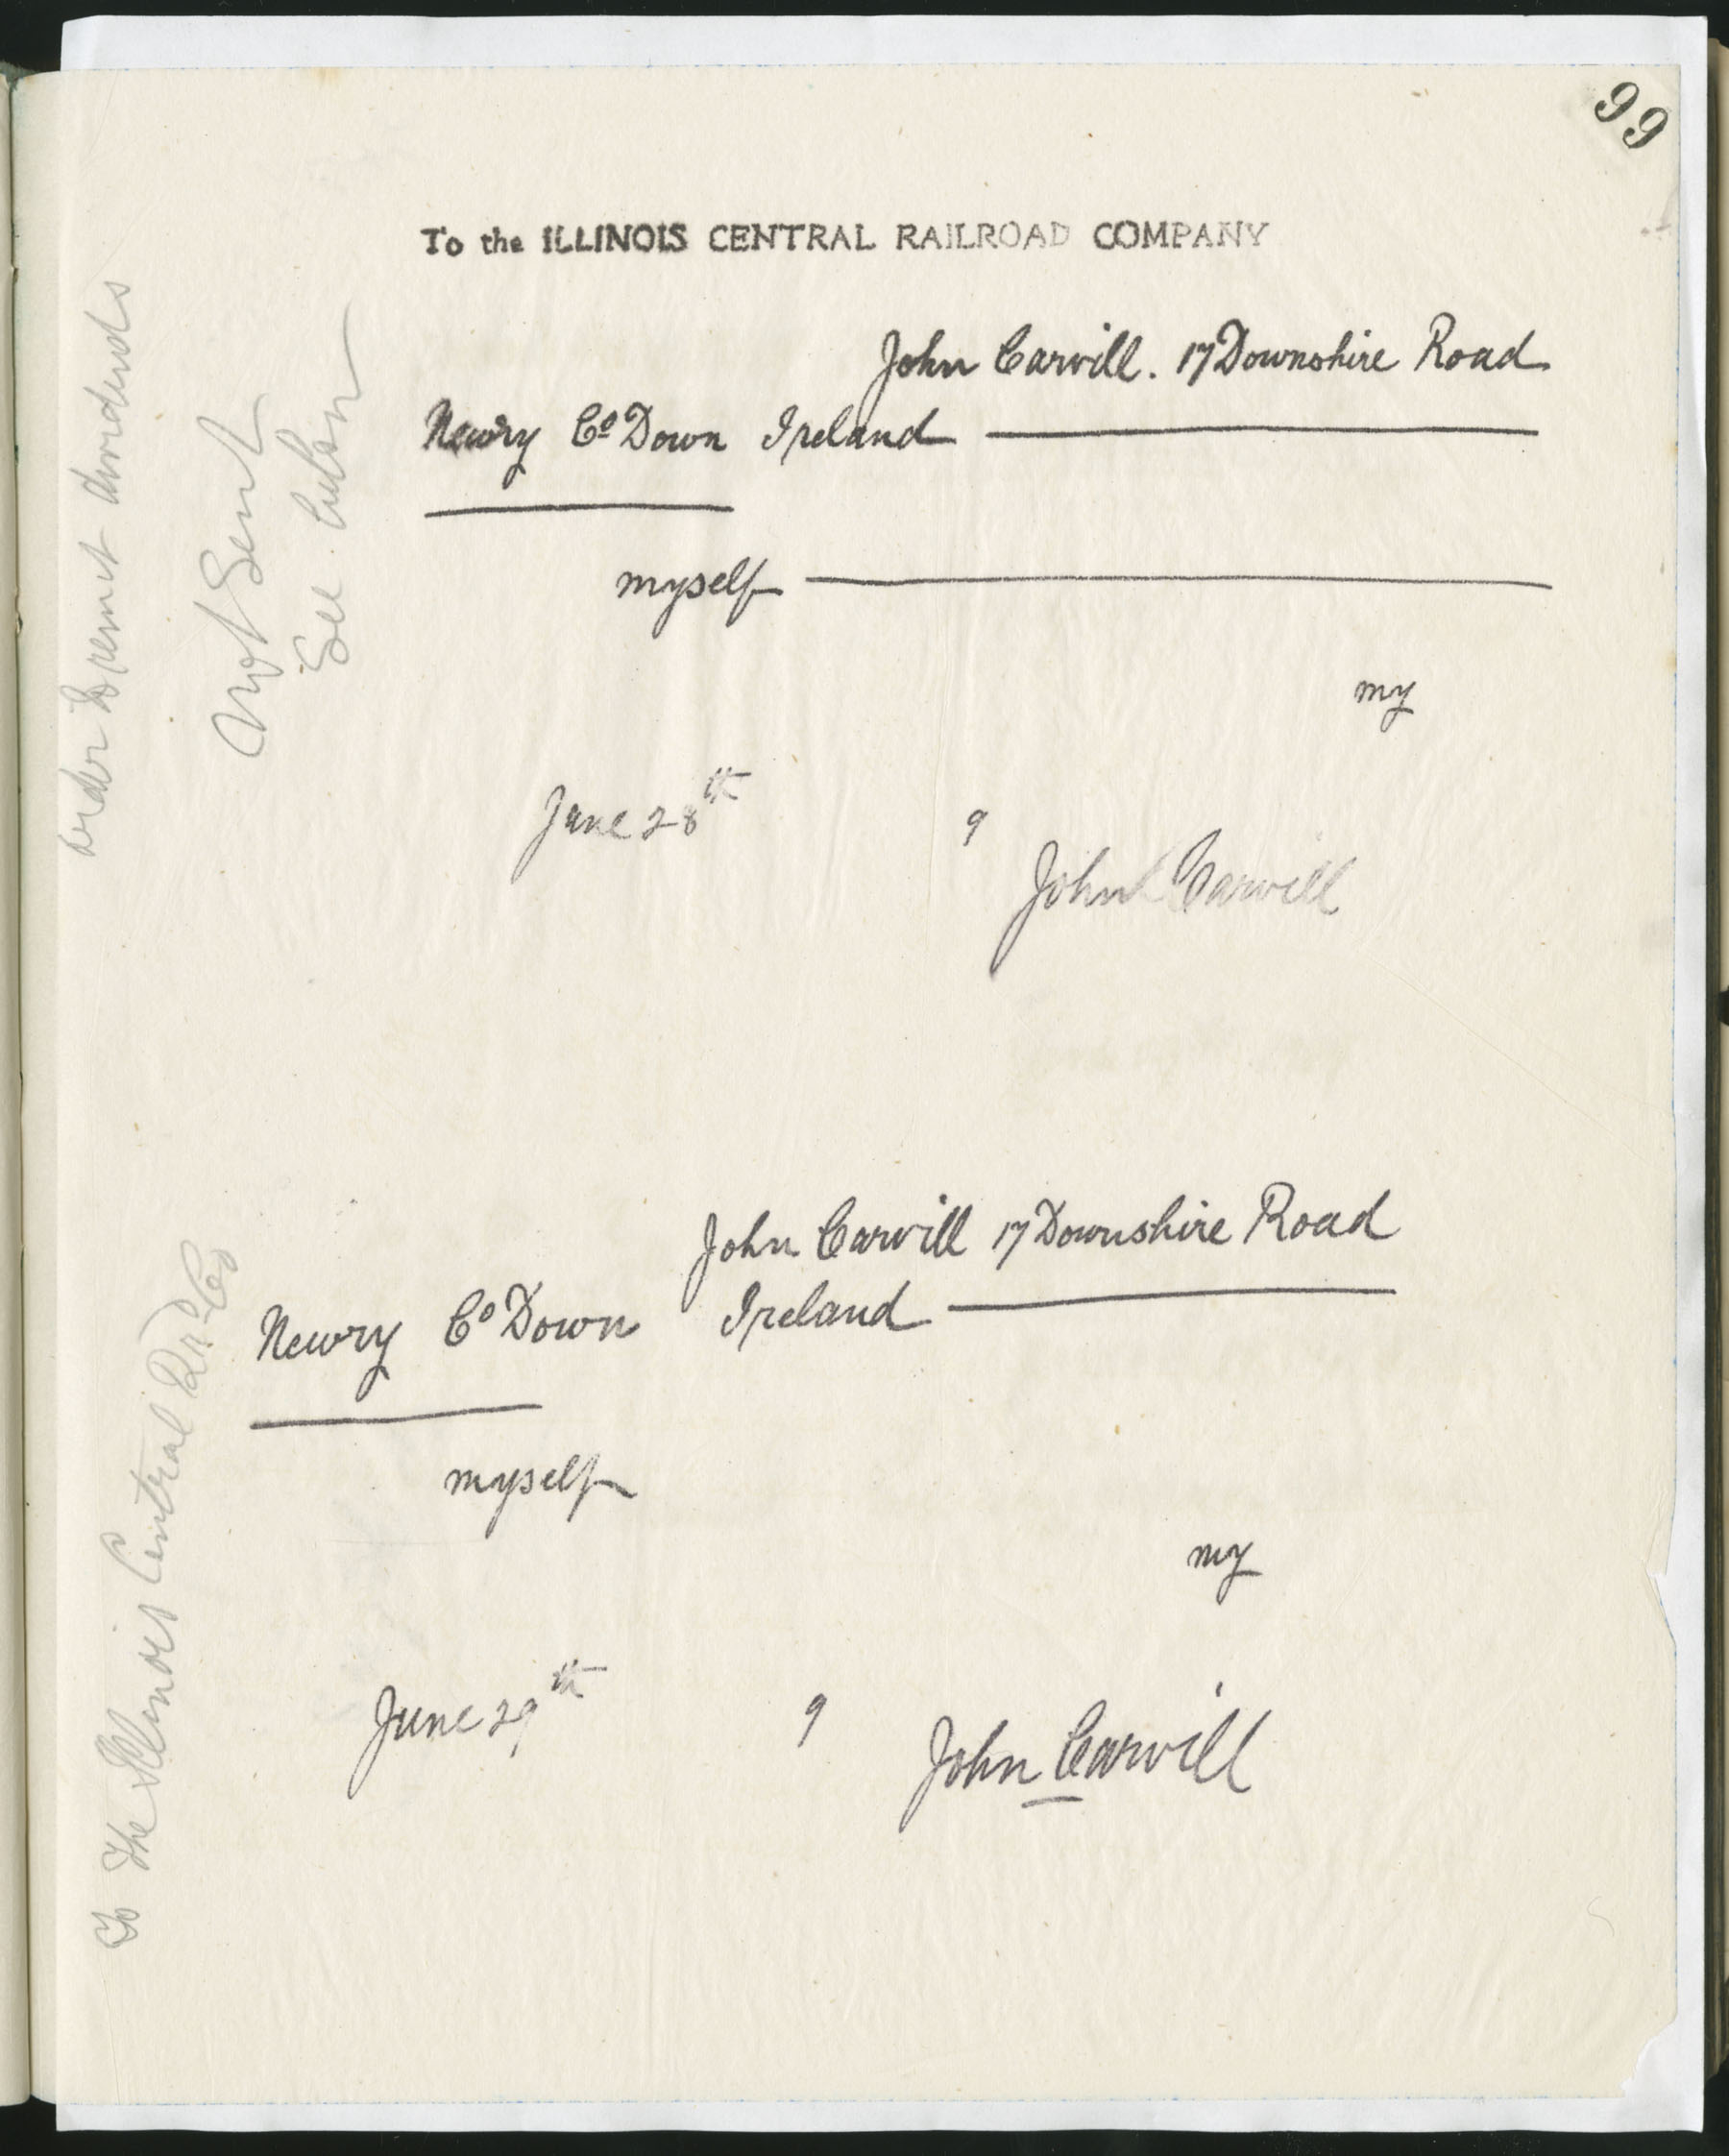 99
To the ILLINOIS CENTRAL RAILROAD COMPANY
John Carvill. 17 Downshire Road
Newry Co Down Ireland
myself
my
June 28th 9
John Carvill
order to remit dividends
Not Sent
See
John Carvill 17 Downshire Road
Newry Co Down Ireland
myself
my
June 29th 9
John Carvill
To The Illinois Central RR Co